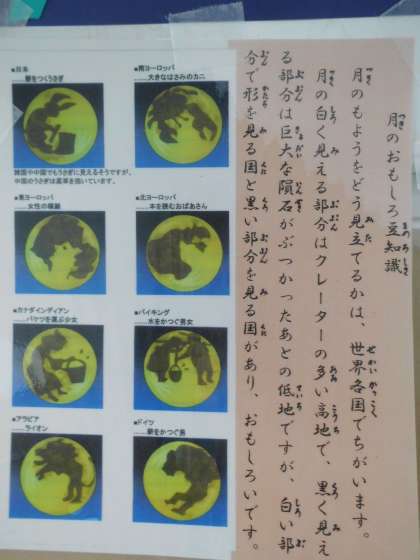 月のおもしろ豆知識
月のもようをどう見立てるかは、世界各国でちがいます。
月の白く見える部分はクレーターの多い高地で、黒く見え
る部分は巨大な隕石がぶつかったあとの低地ですが、白い部
分で形を見る国と黒い部分を見る国があり、おもしろいです。
■日本
……餅をつくうさぎ
■南ヨーロッパ
……大きなはさみのカニ
韓国や中国でもうさぎに見えるそうですが、
中国のうさぎは薬草を挽いています。
■東ヨーロッパ
……女性の横顔
■北ヨーロッパ
……本を読むおばあさん
■カナダインディアン
……バケツを運ぶ少女
■バイキング
……水をかつぐ男女
■アラビア
……ライオン
■ドイツ
……薪をかつぐ男